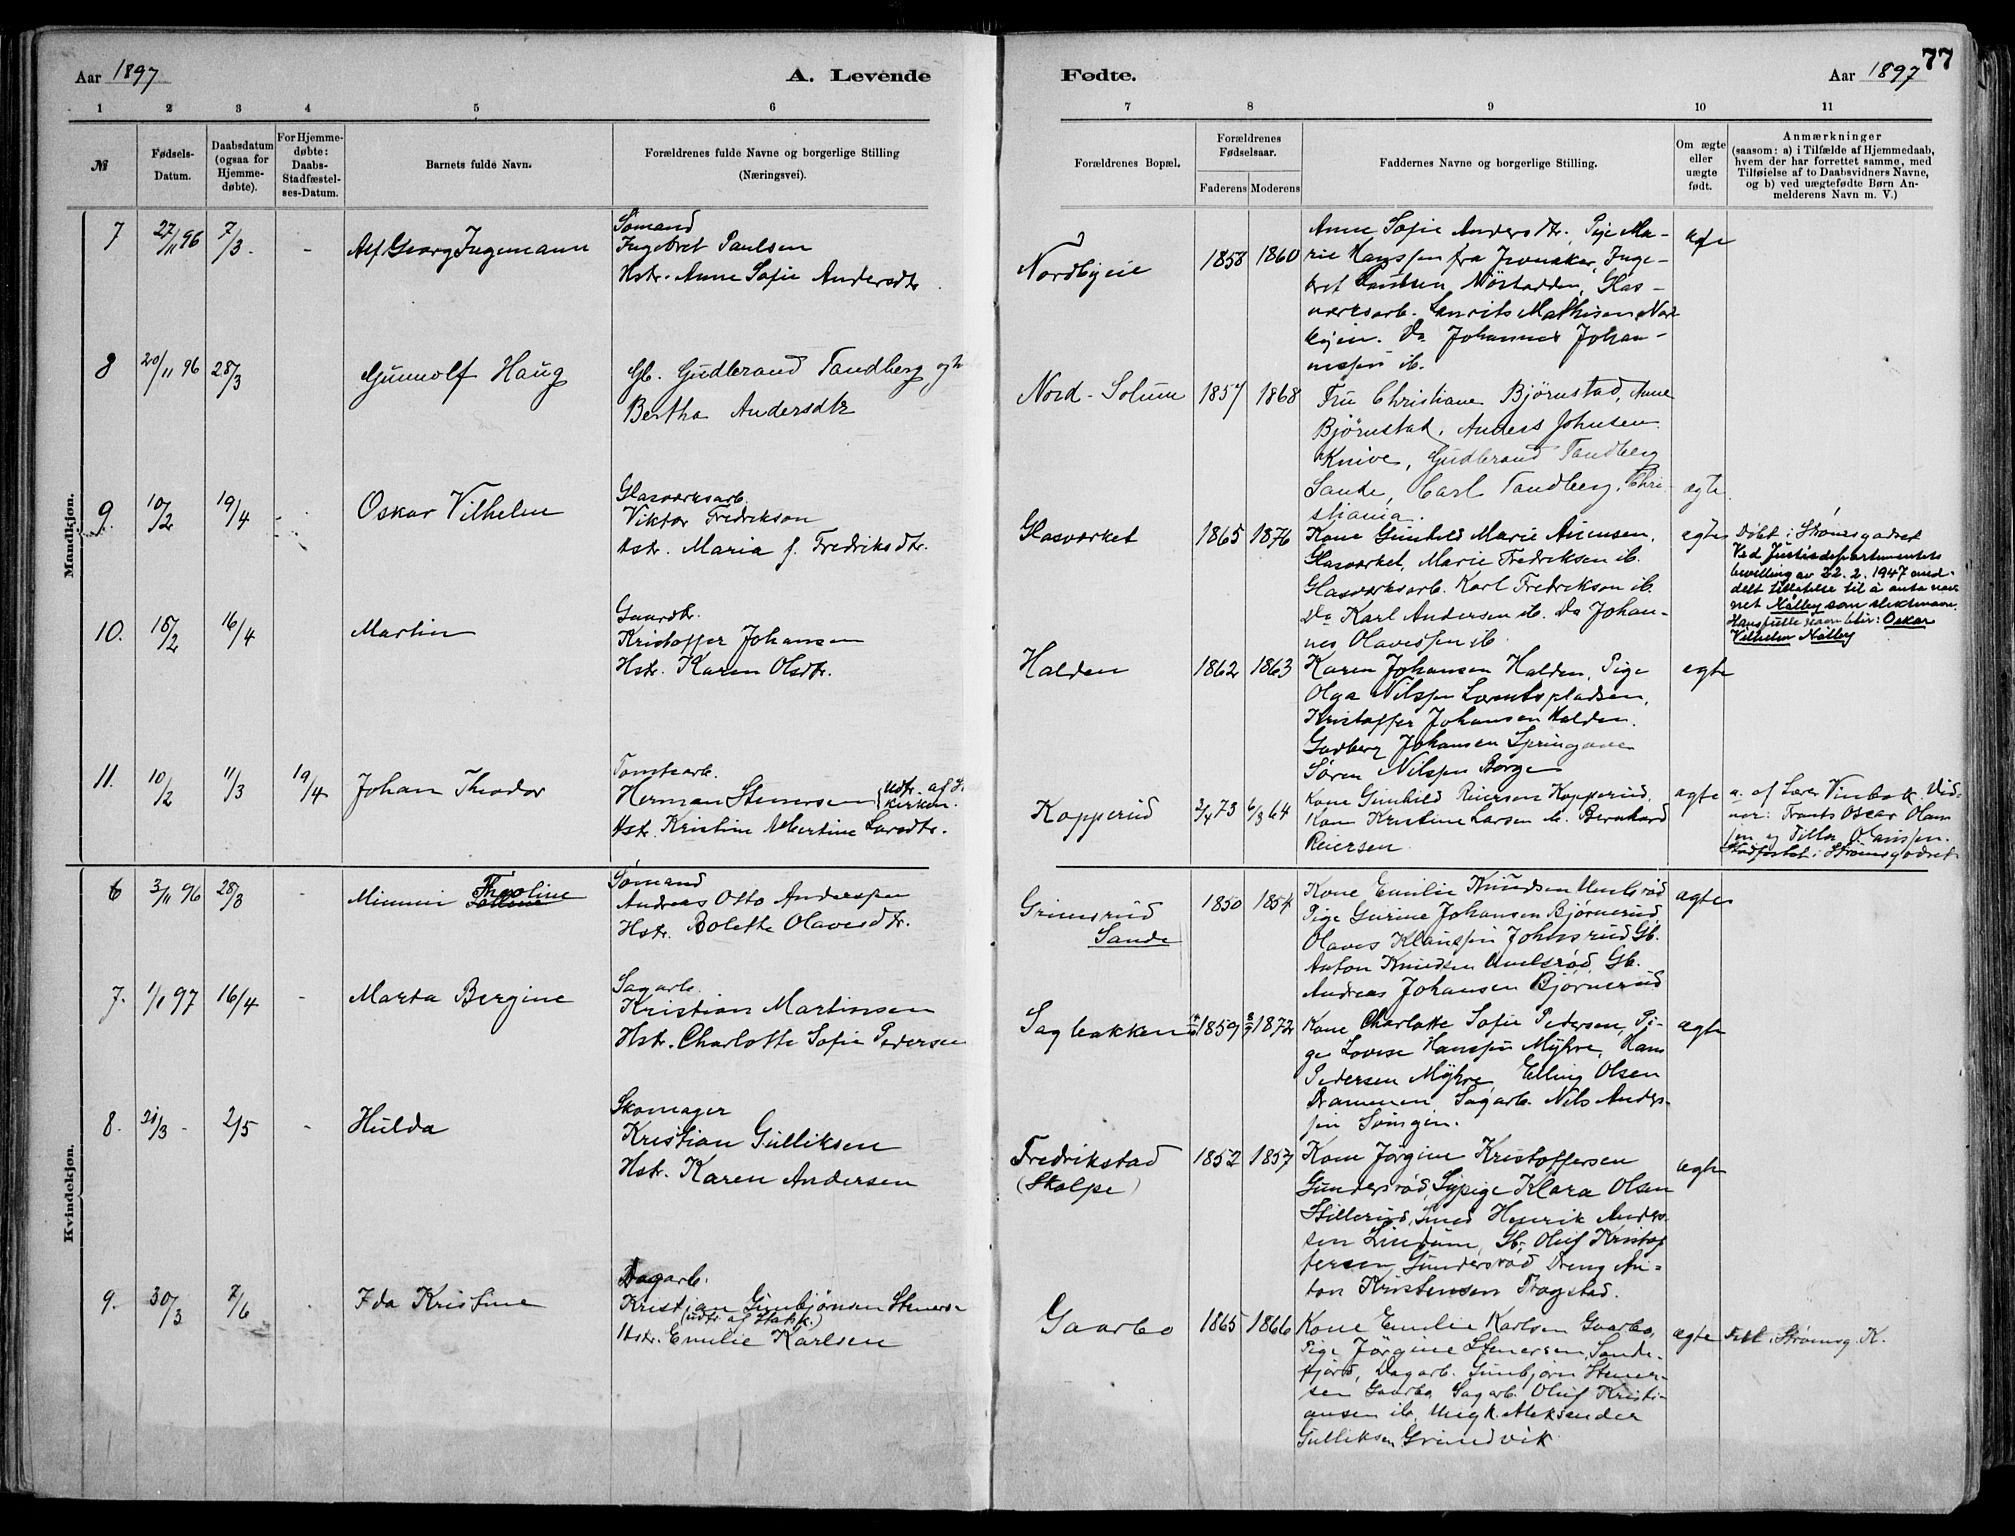 Aar 1897
A. Levende
Fødte.
Aar 1897
77
1 2 3 4 5 6 7 8 9 10 11
№
Fødsels-
Datum.
Daabsdatum
(ogsaa for
Hjemme-
døbte).
For Hjemme-
døbte:
Daabs-
Stadfæstel-
ses-Datum.
Barnets fulde Navn.
Forældrenes fulde Navne og borgerlige Stilling
(Næringsvei).
Forældrenes Bopæl.
Forældrenes
Fødselsaar.
Faderens Moderens
Faddernes Navne og borgerlige Stilling.
Om ægte
eller
uægte
født.
Anmærkninger
(saasom: a) i Tilfælde af Hjemmedaab,
hvem der har forrettet samme, med
Tilføielse af to Daabsvidners Navne,
og b) ved uægtefødte Børn An-
melderens Navn m. V.)
Mandkjøn.
7 27/11 96 7/3 - Alf Georg Ingemann
Sømand
Ingebret Paulsen
Hstr. Anne Sofie Andersdtr.
Nordbyeie 1858 1860
Anne Sofie Andersdtr., Pige Ma-
rie Hanssen fra Jevnaker, Inge-
bret Paulsen, Nøstodden, Glas-
værksarb. Laurits Mathisen Nord-
byeie. Do Johannes Johan-
nessen ib.
ægte
8 20/11 96 28/3 Gunnolf Haug
Gb. Gudbrand Tandberg og h
Bertha Andersdtr
Nord-Solum 1857 1868
Fru Christiane Bjørnstad, Anne
Bjørnstad, Anders Johnsen
Knive, Gudbrand Tandberg
Sande, Carl Tandberg, Chri-
stiania.
ægte
9. 10/2 19/4 - Oskar Vilhelm
Glasværksarb.
Viktor Fredrikson
Hstr. Maria f. Fredriksdtr.
Glasværket 1865 1876
Kone Gunhild Marie
Glasværket, Marie Fredriksen ib.
Glasværksarb. Karl Fredrikson ib.
Do Karl Andersen ib. Do Johan-
nes Olavessen ib
ægte
Døbt i Strømsgodset
Ved Justisdepartementets
bevilling av 22.2.1947 med-
delt tillatelse til å anta nav-
net Nølby som slektsnavn.
Hans fulle navn blir: Oskar
Vilhelm Nølby
10. 18/2 16/4 Martin
Gaardbr.
Kristoffer Johansen
Hstr. Karen Olsdtr.
Halden 1862 1863
Karen Johansen Halden, Pige
Olga Nilssen Lorentspladsen,
Kristoffer Johansen Halden.
Gudberg Johansen
Søren Nilssen Borge
ægte
11. 10/2 11/3 19/4 Johan Theodor
Tomtearb.
Herman Stenersen (Udtr. af St.
kirken.
Hstr. Kristine Albertine Larsdtr.
Kopperud 2/4 73 6/3 64
Kone Gunhild Reiersen Kopperud,
Kone Kristine Larsen ib. Bernhard
Reiersen
ægte
a. af Lærer Vid-
ner: Frants Oscar Olaus-
sen og Olaussen.
Stadfæstet i Strømsgodset
Kvindekjøn.
6 3/11 96 28/3 Minnni Theoline
Sømand
Andreas Otto Anderssen
Hstr. Bolette Olavesdtr.
Grimsrud
Sande
1850 1854
Kone Emilie Knudsen
Pige Gurine Johansen Bjørnerud
Olaves Klaussen Johnsrud Gb.
Anton Knudsen Gb.
Andreas Johansen Bjørnerud
ægte
7. 1/1 97 16/4 - Marta Bergine
Sagarb.
Kristian Martinsen
Hstr. Charlotte Sofie Pedersen
Sagbakken 1859 1872
Kone Charlotte Sofie Pedersen, Pi-
ge Lovise Hanssen Myhre, Hans
Pedersen Myhre, Elling Olsen
Drammen, Sagarb. Nils Anders-
sen
ægte
8. 21/3 - 2/5 - Hulda
Skomager
Kristian Gulliksen
Hstr. Karen Andersen
Fredrikstad
(Skolpe)
1852 1857
Kone Jørgine Kristoffersen
Gundersrød, Sypige Klara Olsen
Stillerud, Smed Henrik Anders-
sen Lindum, Gb. Oluf Kristof-
fersen Gundersrød Dreng An-
ton Kristensen Fragstad.
ægte
9. 30/3 7/6 - Ida Kristine
Dagarb.
Kristian Gunbjørnsen Steners.
(udtr. af Statsk.)
Hstr. Emilie Karlsen
Gaarbo 1865 1866
Kone Emilie Karlsen Gaarbo,
Pige Jørgine Stenersen, Sande-
fjord, Dagarb. Gunbjørn Stener-
sen Gaarbo, Sagarb. Oluf Kristi-
ansen ib, Ungk. Aleksander
Gulliksen Grundvik
ægte
Født i Strømsg. K.